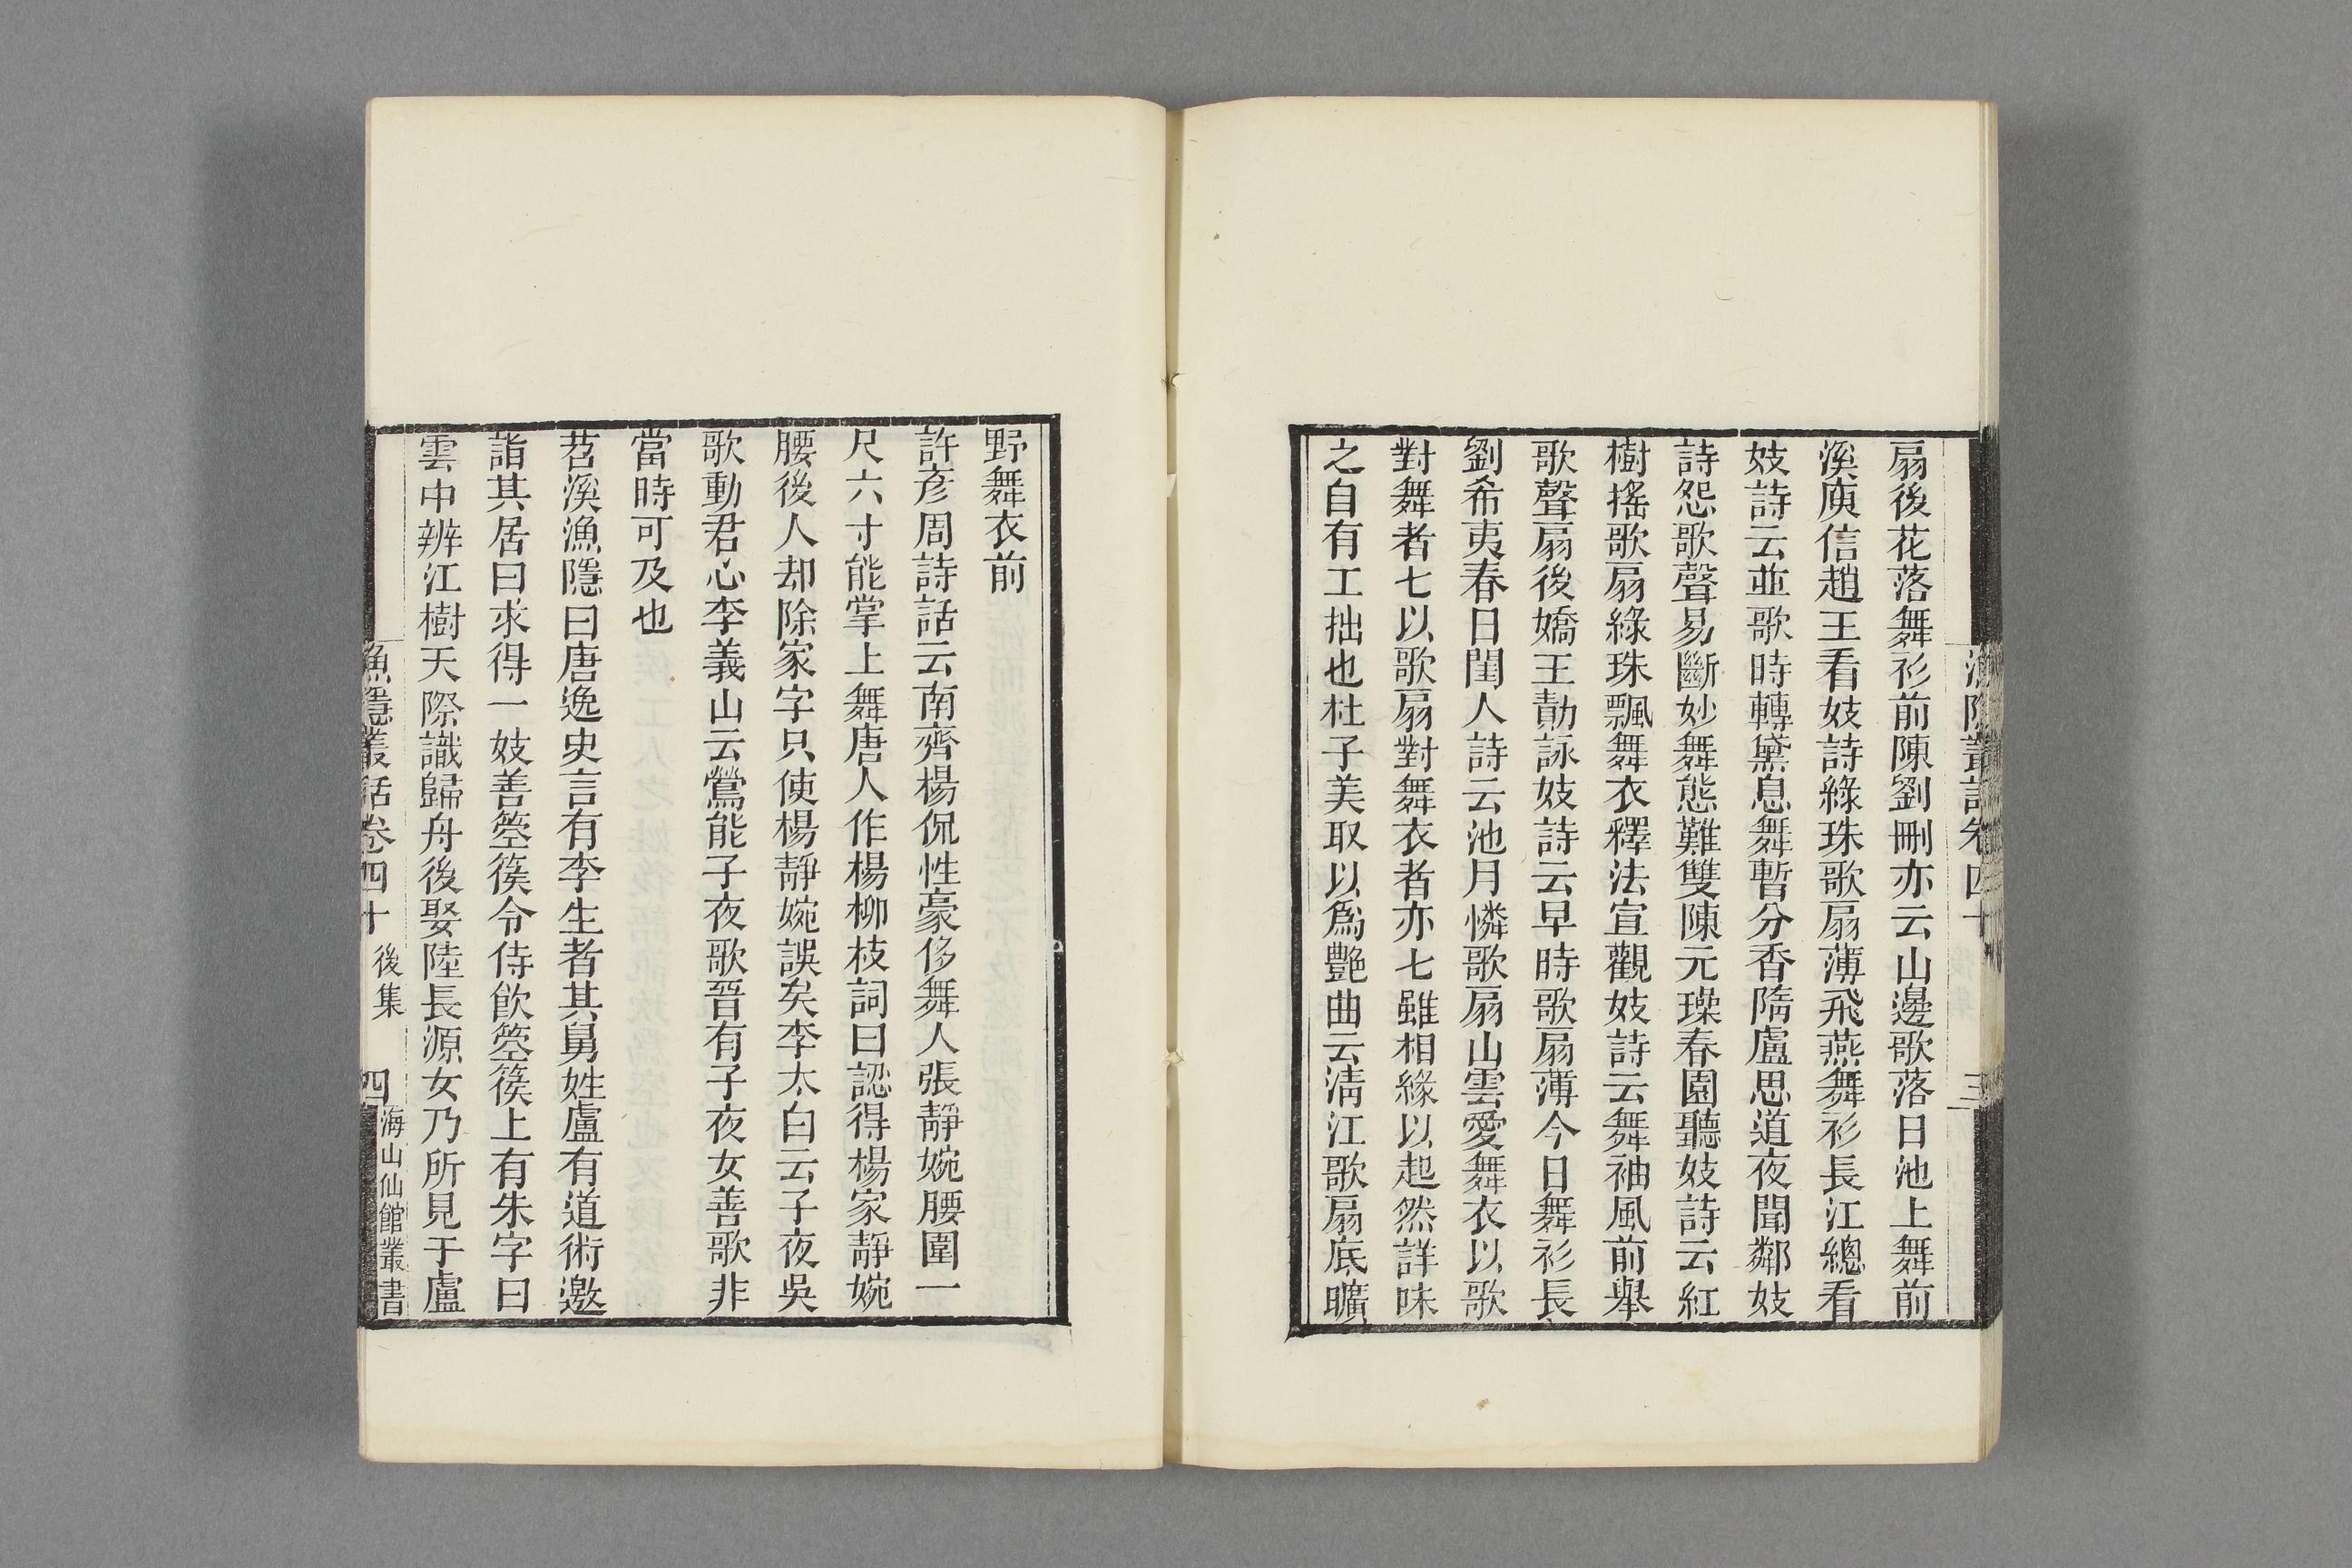 漁隱叢話卷四十
三
扇後花落舞衫前陳劉刪亦云山邊歌落日池上舞前
溪庾信趙王看妓詩綠珠歌扇薄飛燕舞衫長江總看
妓詩云並歌時轉黛息舞暫分香隋盧思道夜聞鄰妓
詩怨歌聲易斷妙舞態難雙陳元璪春園聽妓詩云紅
樹搖歌扇綠珠飄舞衣釋法宣觀妓詩云舞袖風前舉
歌聲扇後嬌王勣詠妓詩云早時歌扇薄今日舞衫長
劉希夷春日閨人詩云池月憐歌扇山雲愛舞衣以歌
對舞者七以歌扇對舞衣者亦七雖相緣以起然詳味
之自有工拙也杜子美取以爲艷曲云淸江歌扇底曠
野舞衣前
許彥周詩話云南齊楊侃性豪侈舞人張靜婉腰圍一
尺六寸能掌上舞唐人作楊柳枝詞曰認得楊家靜婉
腰後人却除家字只使楊靜婉誤矣李太白云子夜吳
歌動君心李義山云鶯能子夜歌晉有子夜女善歌非
當時可及也
苕溪漁隱曰唐逸史言有李生者其舅姓盧有道術邀
詣其居曰求得一妓善箜篌令侍飮箜篌上有朱字曰
雲中辨江樹天際識歸舟後娶陸長源女乃所見于盧
漁隱叢話卷四十 後集
四
海山仙館叢書